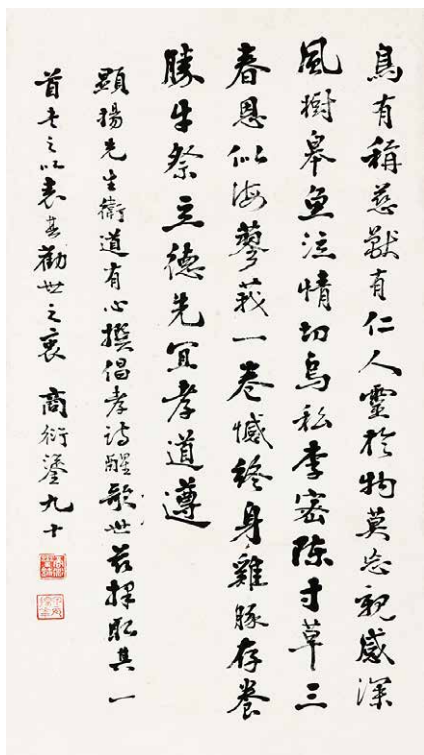 鳥有稱慈獸有仁人靈於物莫忘親感深
風樹皋魚泣情切烏私李密陳寸草三
春恩似海蓼莪一卷憾終身雞豚存養
勝牛祭立德先宜孝道遵
顯揚先生衛道有心撰倡孝詩醒歌世茲擇取其一
首書之以表其勸世之衷 商衍鎏九十